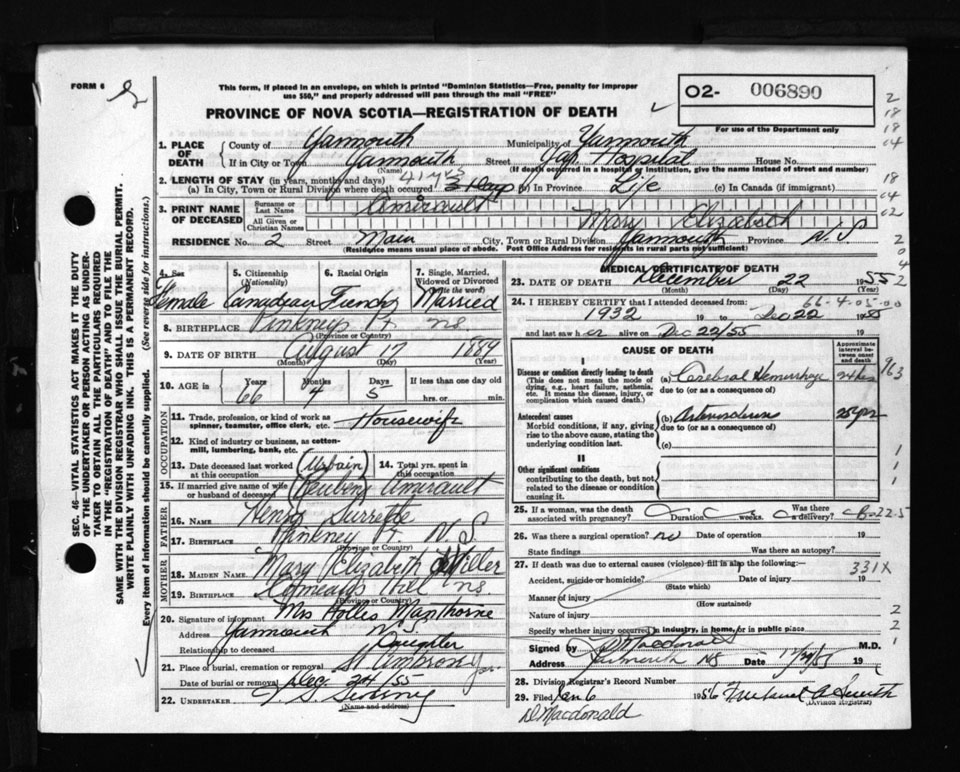 FORM 6
This form, if placed in an envelope, on which is printed "Dominion Statistics—Free, penalty for improper
use $50," and properly addressed will pass through the mail "FREE"
PROVINCE OF NOVA SCOTIA—REGISTRATION OF DEATH
O2- 006890
For use of the Department only
1. PLACE OF DEATH
County of Yarmouth Municipality of Yarmouth
If in City or Town Yarmouth Street Hospital House No.
(Name) (If death occurred in a hospital or institution, give the name instead of street and number)
2. LENGTH OF STAY (in years, months and days) 41 yrs
(a) In City, Town or Rural Division where death occurred 3 Days (b) in Province Life (c) In Canada (if immigrant)
3. PRINT NAME OF DECEASED
Surname or Last Name Amirault
All Given or Christian Names Mary Elizabeth
RESIDENCE No. 2 Street Main City, Town or Rural Division Yarmouth Province N.S.
(Residence means usual place of abode. Post Office Address for residents in rural parts not sufficient)
4. Sex Female
5. Citizenship (Nationality) Canadian
6. Racial Origin French
7. Single, Married, Widowed or Divorced (Write the word) Married
8. BIRTHPLACE Pinkneys Pt NS
(Province or Country)
9. DATE OF BIRTH August 17 1889
(Month) (Day) (Year)
10. AGE in Years Months Days If less than one day old
66 4 5 hrs. or min.
OCCUPATION
11. Trade, profession, or kind of work as spinner, teamster, office clerk, etc. Housewife
12. Kind of industry or business, as cotton-mill, lumbering, bank, etc.
13. Date deceased last worked at this occupation
14. Total yrs. spent in this occupation
(Urbain)
15. If married give name of wife or husband of deceased (Reuben) Amirault
FATHER
16. NAME Henry Surrette
17. BIRTHPLACE Pinkney Pt. N.S.
(Province or Country)
MOTHER
18. MAIDEN NAME Mary Elizabeth Miller
19. BIRTHPLACE Hill NS.
(Province or Country)
20. Signature of informant Mrs Hollis Manthorne
Address Yarmouth N.S.
Relationship to deceased Daughter
21. Place of burial, cremation or removal St. Ambrose
Date of burial or removal Dec. 24/55
22. UNDERTAKER
(Name and address)
MEDICAL CERTIFICATE OF DEATH
23. DATE OF DEATH December 22 1955
(Month) (Day) (Year)
66-4-05-00
24. I HEREBY CERTIFY that I attended deceased from:
1932 19 to Dec 22 1955
and last saw her alive on Dec 22/55 19
CAUSE OF DEATH
Approximate interval between onset and death
I
Disease or condition directly leading to death
(This does not mean the mode of dying, e.g., heart failure, asthenia, etc. It means the disease, injury, or complication which caused death.)
(a) Cerebral Hemorrhage
due to (or as a consequence of)
Antecedent causes
Morbid conditions, if any, giving rise to the above cause, stating the underlying condition last.
(b)
due to (or as a consequence of)
(c)
II
Other significant conditions
contributing to the death, but not related to the disease or condition causing it.
25. If a woman, was the death associated with pregnancy? Duration weeks. Was there a delivery?
26. Was there a surgical operation? no Date of operation 19
State findings Was there an autopsy?
27. If death was due to external causes (violence) fill in also the following:— 331X
Accident, suicide or homicide? Date of injury 19
(State which)
Manner of injury
(How sustained)
Nature of injury
Specify whether injury occurred in industry, in home, or in public place
Signed by M.D.
Address Yarmouth NS Date 19
28. Division Registrar's Record Number
29. Filed Jan 6 1956
(Division Registrar)
D Macdonald
SEC. 46—VITAL STATISTICS ACT MAKES IT THE DUTY
OF THE UNDERTAKER OR PERSON ACTING AS UNDER-
TAKER TO OBTAIN ALL THE PARTICULARS REQUIRED
IN THE "REGISTRATION OF DEATH" AND TO FILE THE
SAME WITH THE DIVISION REGISTRAR WHO SHALL ISSUE THE BURIAL PERMIT.
WRITE PLAINLY WITH UNFADING INK. THIS IS A PERMANENT RECORD.
Every item of information should be carefully supplied. (See reverse side for instructions.)